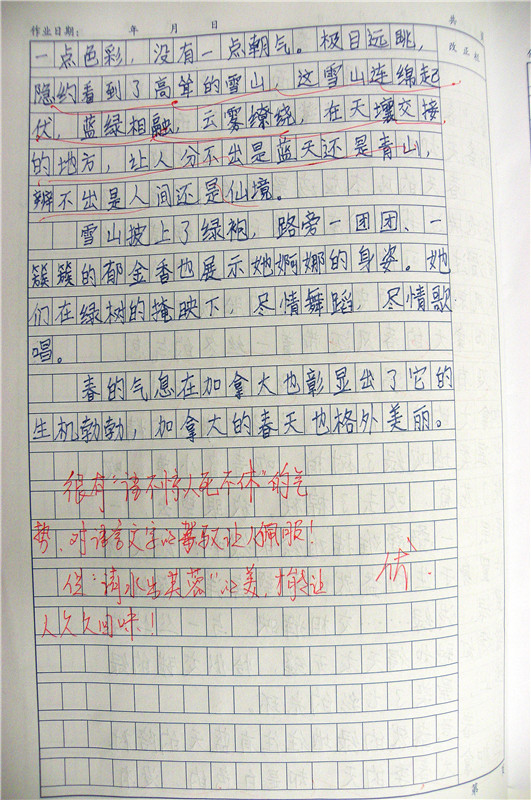 作业日期: 年 月 日
共 页
改正栏
一点色彩，没有一点朝气。极目远眺，
隐约看到了高耸的雪山，这雪山连绵起
伏，蓝绿相融，云雾缭绕，在天壤交接
的地方，让人分不出是蓝天还是青山，
辨不出是人间还是仙境。
雪山披上了绿袍，路旁一团团、一
簇簇的郁金香也展示她婀娜的身姿。她
们在绿树的掩映下，尽情舞蹈，尽情歌
唱。
春的气息在加拿大也彰显出了它的
生机勃勃，加拿大的春天也格外美丽。
很有“语不惊人死不休”的气
势，对语言文字的驾驭让人佩服！
但“清水出芙蓉”的美，才会让
人久久回味！
优
第